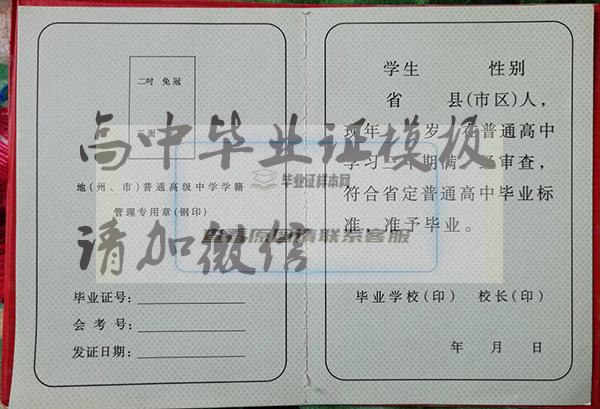 二吋 免冠
正面
地(州、市)普通高级中学学籍
管理专用章(钢印)
毕业证号:
会考号:
发证日期:
学生 性别
省 县(市区)人,
现年 岁,在普通高中
学习三年期满,经审查,
符合省定普通高中毕业标
准,准予毕业。
毕业学校(印) 校长(印)
年 月 日
高中毕业证模板
请加微信
毕业证样本网
查看原图请联系客服